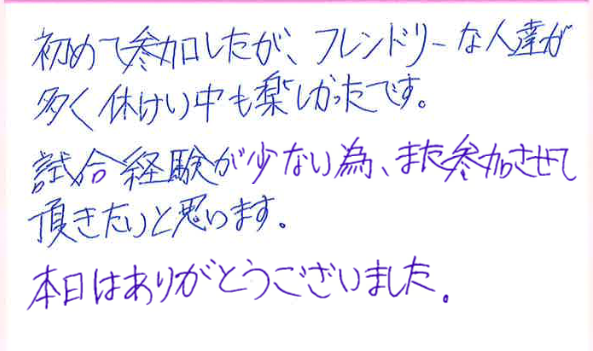 初めて参加したが、フレンドリーな人達が
多く休けい中も楽しかったです。
試合経験が少ない為、また参加させて
頂きたいと思います。
本日はありがとうございました。